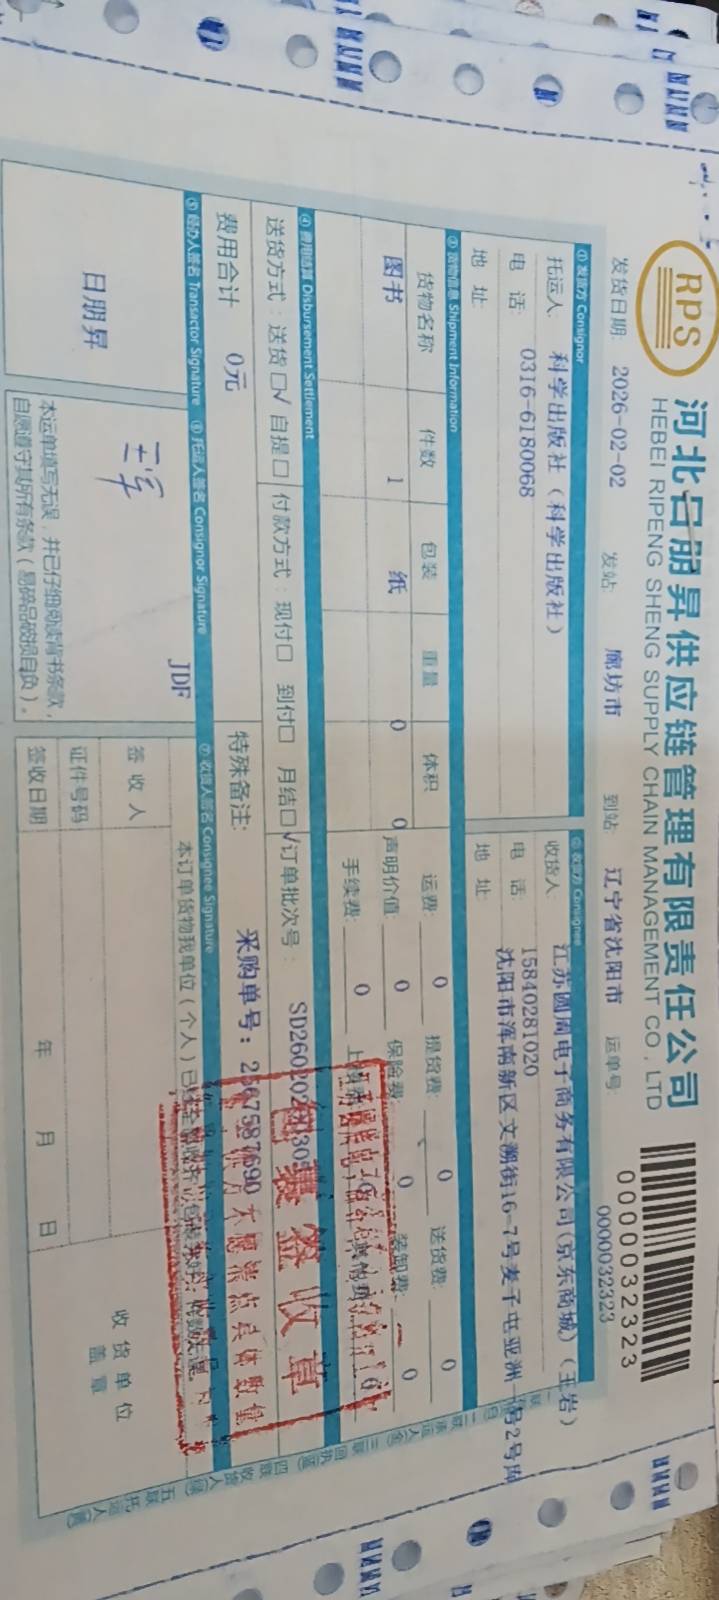 RPS
河北日朋昇供应链管理有限责任公司
HEBEI RIPENG SHENG SUPPLY CHAIN MANAGEMENT CO., LTD
0000032323
发货日期: 2026-02-02 发站: 廊坊市 到站: 辽宁省沈阳市 运单号: 0000032323
① 发货方 Consignor
托运人: 科学出版社（科学出版社）
电 话: 0316-6180068
地 址:
② 收货方 Consignee
收货人: 江苏圆周电子商务有限公司(京东商城)（王岩）
电 话: 15840281020
地 址: 沈阳市浑南新区文溯街16-7号麦子屯亚洲一号2号库
③ 货物信息 Shipment Information
货物名称 件数 包装 重量 体积
图书 1 纸 0 0
运费: 0 提货费: 0 送货费: 0
声明价值: 0 保险费: 0 装卸费: 0
手续费: 0
④ 费用结算 Disbursement Settlement
送货方式：送货□√ 自提□ 付款方式：现付□ 到付□ 月结□√ 订单批次号：
费用合计 0元 特殊备注: 采购单号：
包裹签收章
不愿清点具体数量
⑤ 经办人签名 Transactor Signature
日朋昇
⑥ 托运人签名 Consignor Signature
JDF
本运单填写无误，并已仔细阅读背书条款，
自愿遵守其所有条款（易碎品破损自负）。
⑦ 收货人签名 Consignee Signature
本订单货物我单位（个人）已
签 收 人
证件号码
签收日期 年 月 日
收货单位
盖 章